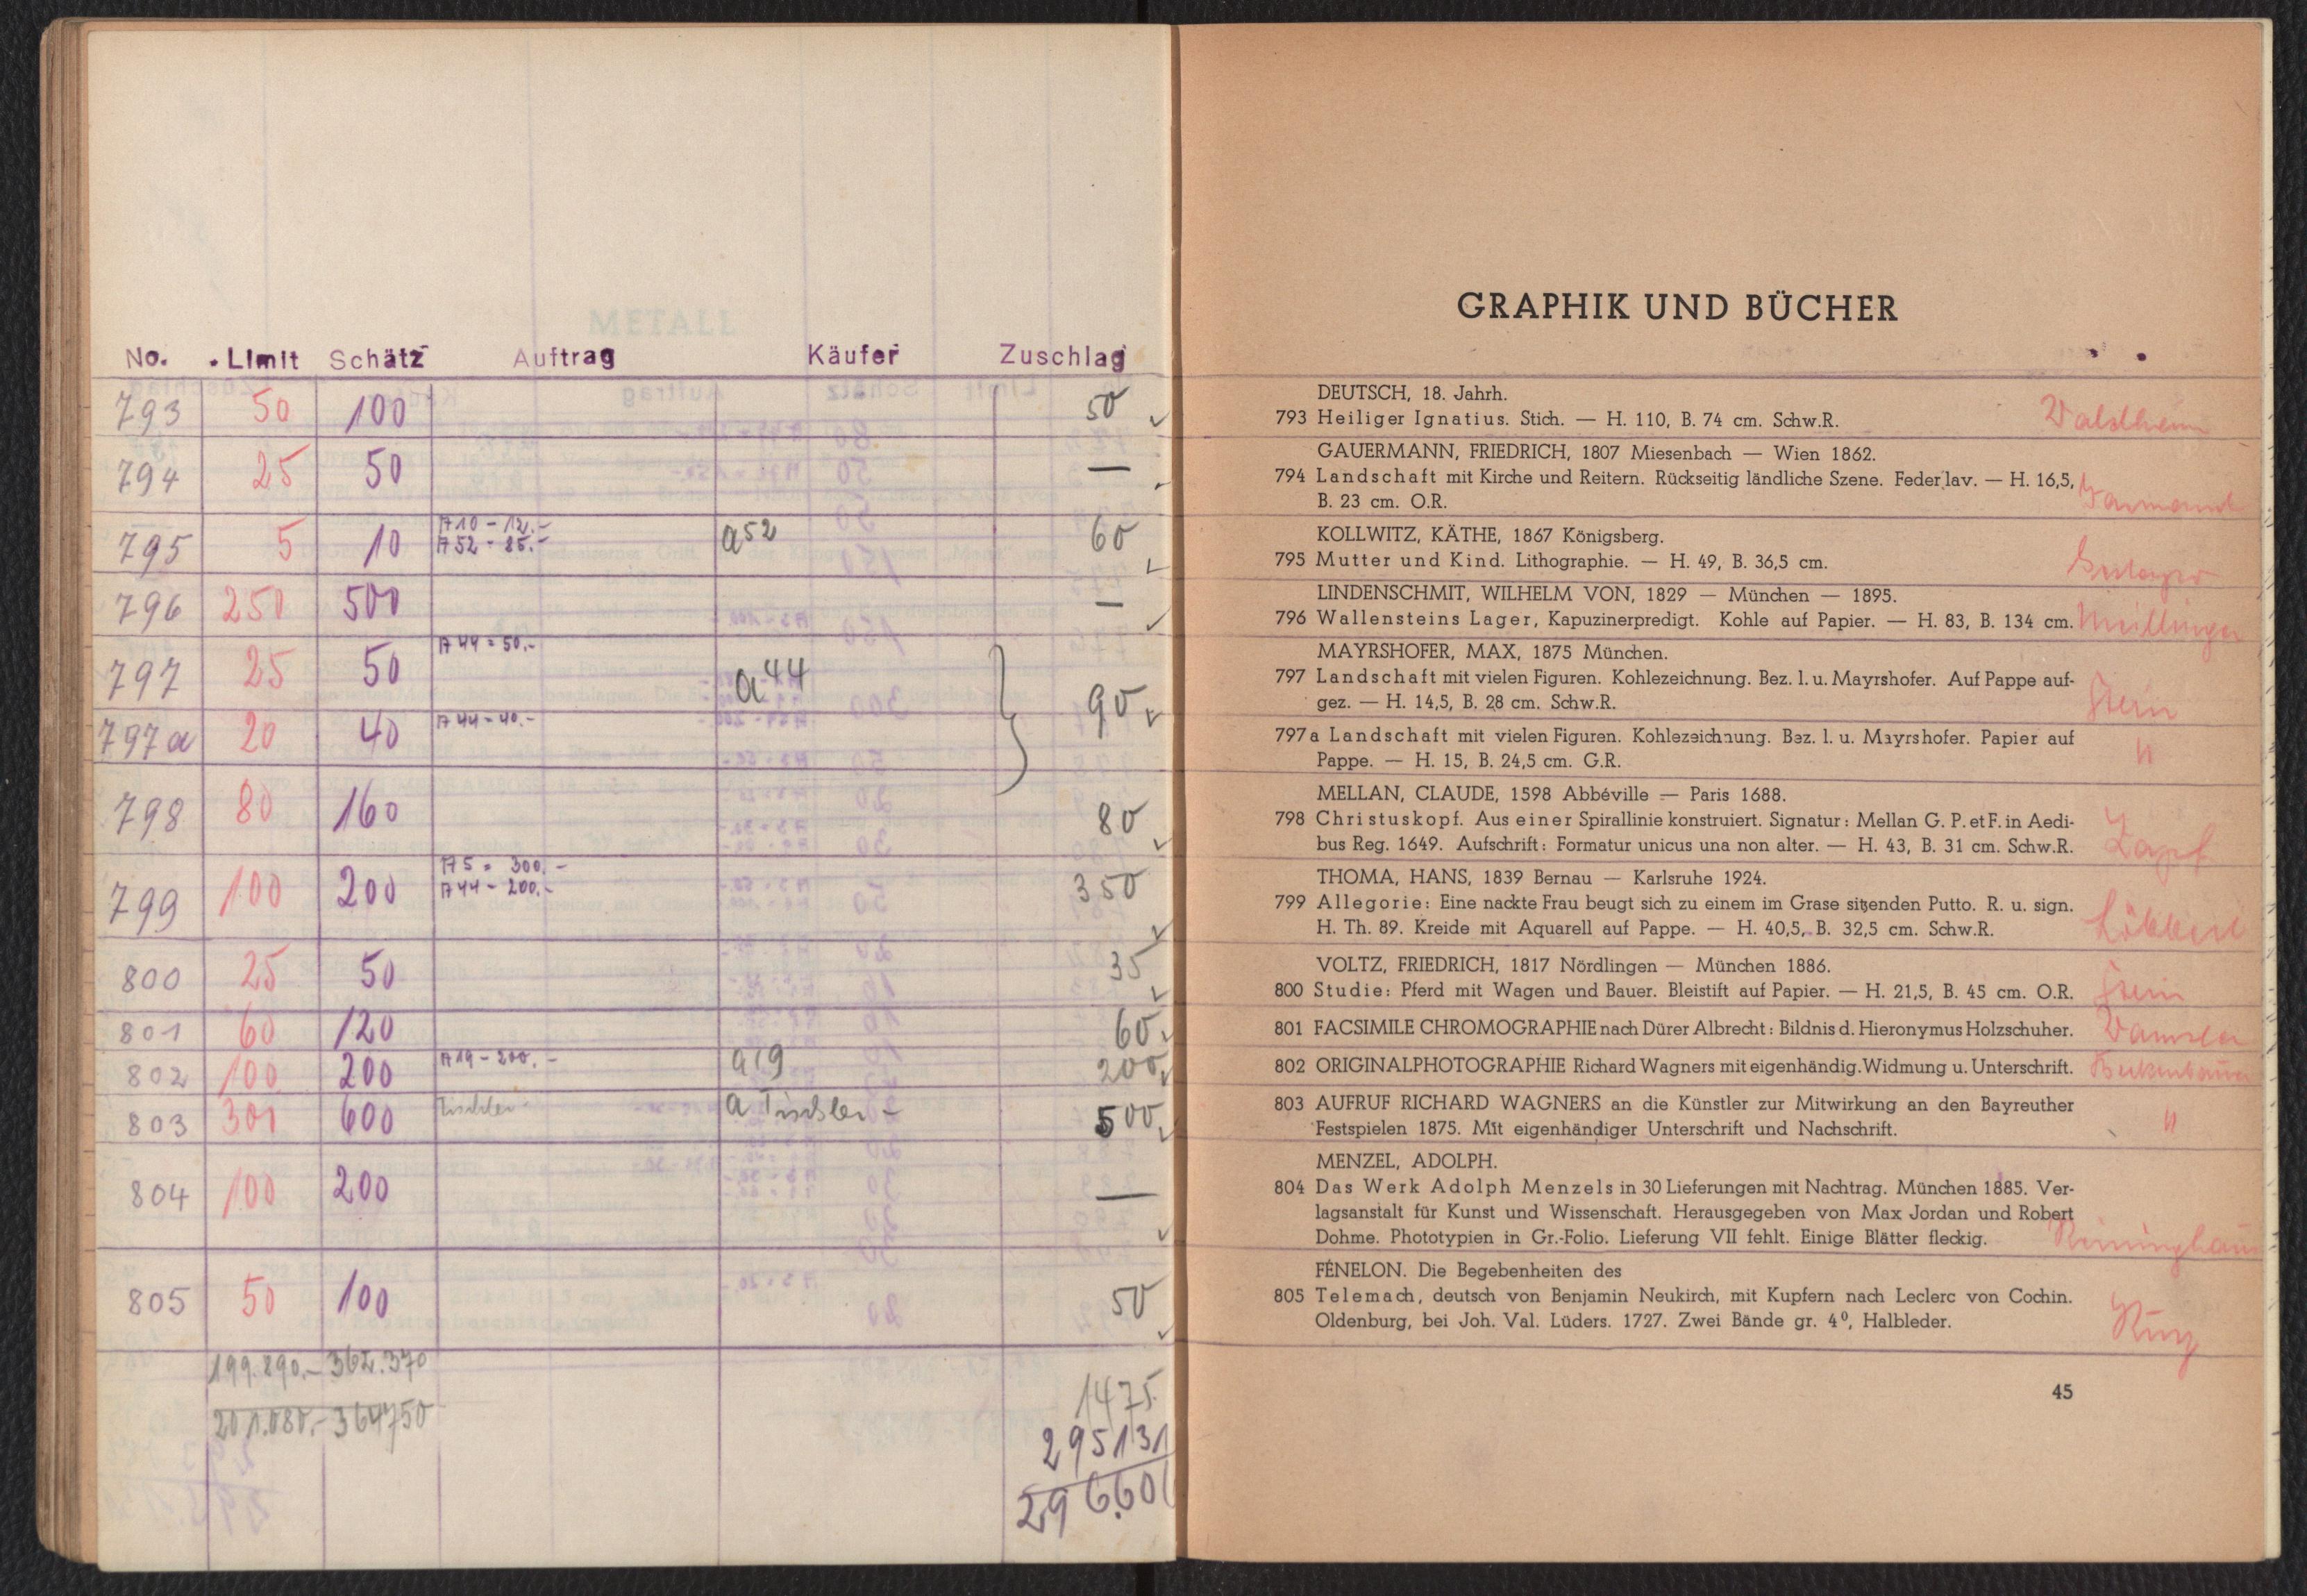 METALL
No. Limit Schätz Auftrag Käufer Zuschlag
793 50 100 50
794 25 50 —
795 5 10 A10 - 12.- a52 60
A52 - 25.-
796 250 500 —
797 25 50 A44 = 50.- a44 90
797a 20 40 A44 - 40.-
798 80 160 80
799 100 200 A5 = 300.- 350
A44 - 200.-
800 25 50 35
801 60 120 60
802 100 200 A19 - 200.- a19 200
803 300 600 Tischler a Tischler - 500
804 100 200 —
805 50 100 50
199.890.- 362.370
201.080.- 364750
1475
295131
296.606
GRAPHIK UND BÜCHER
DEUTSCH, 18. Jahrh.
793 Heiliger Ignatius. Stich. — H. 110, B. 74 cm. Schw.R. Waldheim
GAUERMANN, FRIEDRICH, 1807 Miesenbach — Wien 1862.
794 Landschaft mit Kirche und Reitern. Rückseitig ländliche Szene. Feder lav. — H. 16,5,
B. 23 cm. O.R.
KOLLWITZ, KÄTHE, 1867 Königsberg.
795 Mutter und Kind. Lithographie. — H. 49, B. 36,5 cm.
LINDENSCHMIT, WILHELM VON, 1829 — München — 1895.
796 Wallensteins Lager, Kapuzinerpredigt. Kohle auf Papier. — H. 83, B. 134 cm. Meillinger
MAYRSHOFER, MAX, 1875 München.
797 Landschaft mit vielen Figuren. Kohlezeichnung. Bez. l. u. Mayrshofer. Auf Pappe auf-
gez. — H. 14,5, B. 28 cm. Schw.R. Stein
797a Landschaft mit vielen Figuren. Kohlezeichnung. Bez. l. u. Mayrshofer. Papier auf
Pappe. — H. 15, B. 24,5 cm. G.R. "
MELLAN, CLAUDE, 1598 Abbéville — Paris 1688.
798 Christuskopf. Aus einer Spirallinie konstruiert. Signatur: Mellan G. P. et F. in Aedi-
bus Reg. 1649. Aufschrift: Formatur unicus una non alter. — H. 43, B. 31 cm. Schw.R. Zapf
THOMA, HANS, 1839 Bernau — Karlsruhe 1924.
799 Allegorie: Eine nackte Frau beugt sich zu einem im Grase sitzenden Putto. R. u. sign.
H. Th. 89. Kreide mit Aquarell auf Pappe. — H. 40,5, B. 32,5 cm. Schw.R.
VOLTZ, FRIEDRICH, 1817 Nördlingen — München 1886.
800 Studie: Pferd mit Wagen und Bauer. Bleistift auf Papier. — H. 21,5, B. 45 cm. O.R. Stein
801 FACSIMILE CHROMOGRAPHIE nach Dürer Albrecht: Bildnis d. Hieronymus Holzschuher.
802 ORIGINALPHOTOGRAPHIE Richard Wagners mit eigenhändig. Widmung u. Unterschrift.
803 AUFRUF RICHARD WAGNERS an die Künstler zur Mitwirkung an den Bayreuther
Festspielen 1875. Mit eigenhändiger Unterschrift und Nachschrift. "
MENZEL, ADOLPH.
804 Das Werk Adolph Menzels in 30 Lieferungen mit Nachtrag. München 1885. Ver-
lagsanstalt für Kunst und Wissenschaft. Herausgegeben von Max Jordan und Robert
Dohme. Phototypien in Gr.-Folio. Lieferung VII fehlt. Einige Blätter fleckig. Reininghaus
FÉNELON. Die Begebenheiten des
805 Telemach, deutsch von Benjamin Neukirch, mit Kupfern nach Leclerc von Cochin.
Oldenburg, bei Joh. Val. Lüders. 1727. Zwei Bände gr. 4⁰, Halbleder.
45